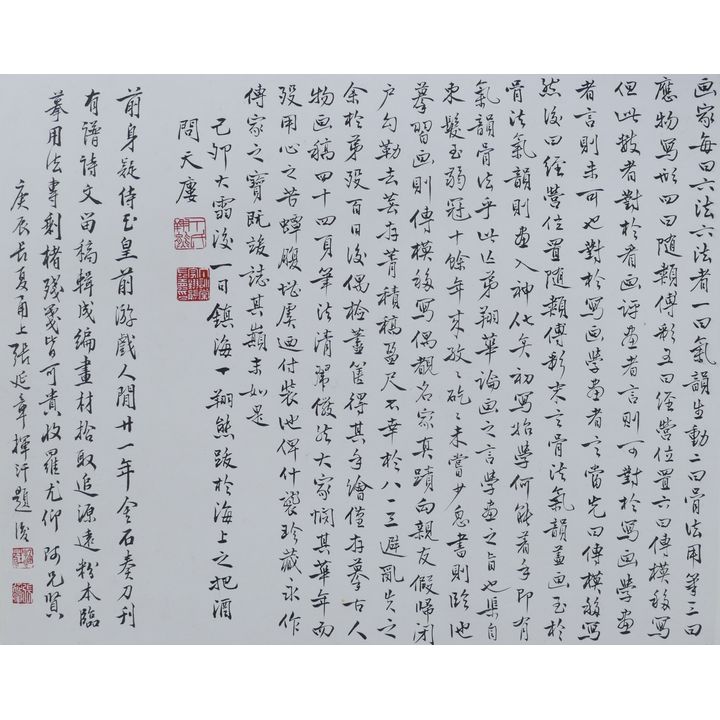 画家每曰六法六法者一曰氣韻生動二曰骨法用筆三曰
應物寫形四曰隨類傅彩五曰經營位置六曰傳模移寫
但此教者對於看画評畫者言則可對於寫画學畫
者言則未可也對於寫画學畫者言當先曰傳模移寫
然後曰經營位置隨類傅彩末言骨法氣韻蓋画至於
骨法氣韻則畫入神化矣初寫始學何能着手即有
氣韻骨法乎此亡弟翔華論画之言學画之旨也渠自
束髮至弱冠十餘年來孜々矻々未嘗少息書則臨池
摹習画則傳模移寫偶觀名家真蹟向親友假歸閉
户勾勒去蕪存菁積稿盈尺不幸於八一三避亂失之
余於弟殁百日後偶檢蓋舊得其手繪僅存摹古人
物画稿四十四頁筆法清潔儼然大家憫其華年而
殁用心之苦蟫腹堪虞迺付裝池俾什襲珍藏永作
傳家之寶既竣誌其巔末如是
己卯大雪後一日鎮海丁翔熊跋於海上之把酒
問天廔
前身疑侍玉皇前游戲人間廿一年金石奏刀刊
有譜詩文留稿輯成編畫材拾取追源遠粉本臨
摹用法專剩楮殘戔皆可貴收羅尤仰阿兄賢
庚辰長夏甬上張延章揮汗題後